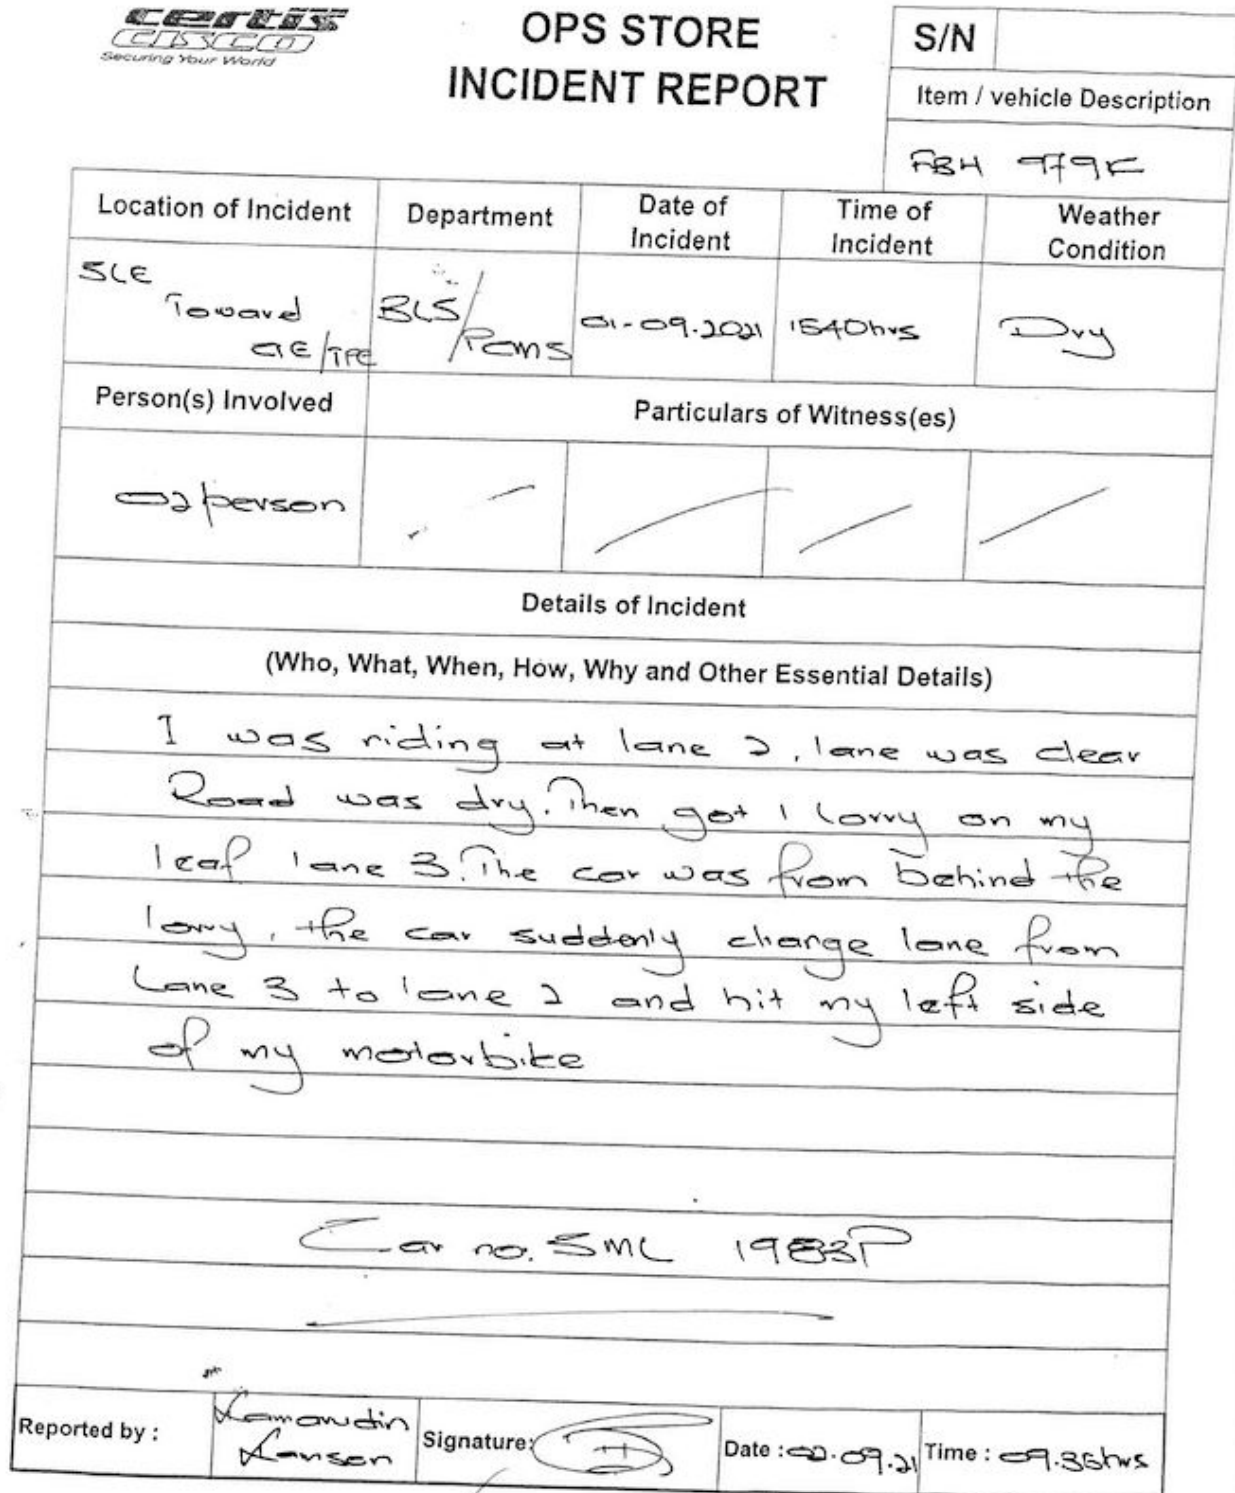 certis
CISCO
Securing Your World
OPS STORE
INCIDENT REPORT
S/N
Item / vehicle Description
FBH 979K
Location of Incident
Department
Date of
Incident
Time of
Incident
Weather
Condition
SLE
Toward
CTE/TPE
BLS/
Pcms
01-09.2021
1540hrs
Dry
Person(s) Involved
Particulars of Witness(es)
02 person
Details of Incident
(Who, What, When, How, Why and Other Essential Details)
I was riding at lane 2, lane was clear
Road was dry. Then got 1 lorry on my
leaf lane 3. The car was from behind the
lorry, the car suddenly change lane from
Lane 3 to lane 2 and hit my left side
of my motorbike
Car no. SML 1983P
Reported by :
Kamarudin
Signature:
Date : 02.09.21
Time : 09.35hrs